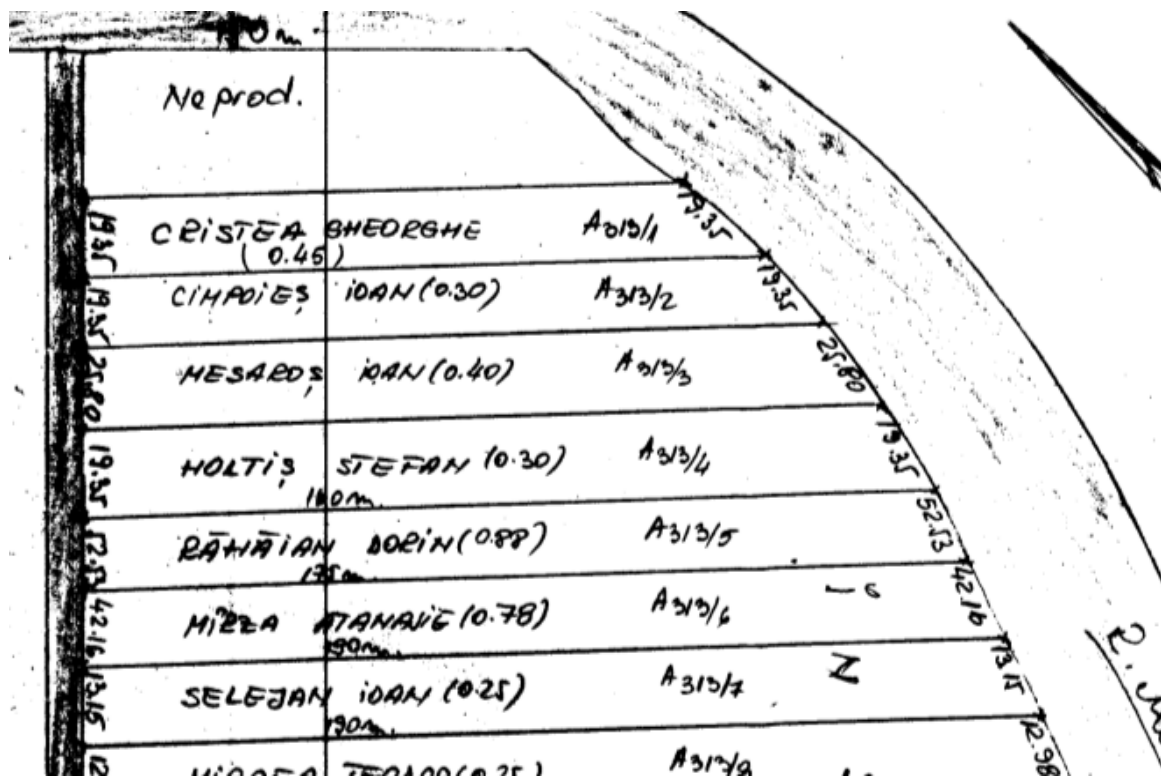 Neprod.
19.35 CRISTEA GHEORGHE A313/1 19.35
(0.45)
19.35 CIMPOIEȘ IOAN (0.30) A313/2 19.35
25.80 MESAROȘ IOAN (0.40) A313/3 25.80
19.35 HOLTIȘ STEFAN (0.30) A313/4 19.35
140m.
52.53 RĂHĂIAN DORIN (0.88) A313/5 52.53
175m.
42.16 MIRZA ATANASIE (0.78) A313/6 42.16
190m.
13.15 SELEJAN IOAN (0.25) A313/7 13.15
190m.
12 A313/8 12.98